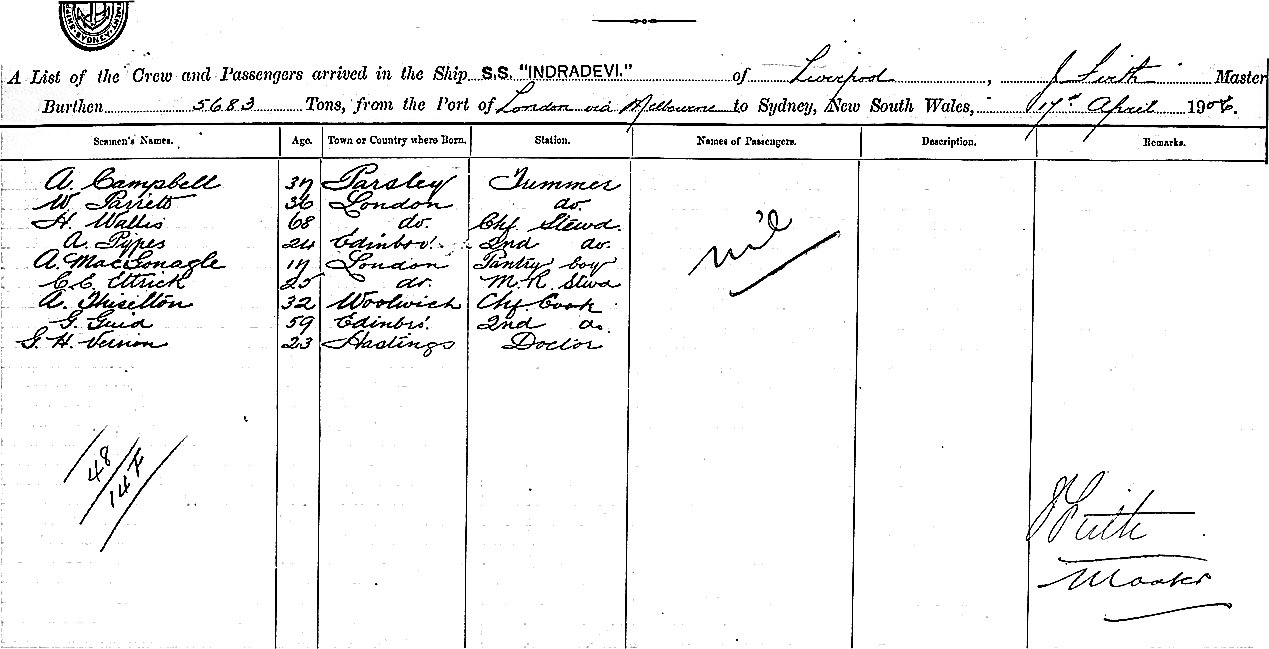 SYDNEY
A List of the Crew and Passengers arrived in the Ship S.S. "INDRADEVI." of Liverpool, J Firth Master
Burthen 5683 Tons, from the Port of London via Melbourne to Sydney, New South Wales, 17th April 1906.
Seamen's Names. Age. Town or Country where Born. Station. Names of Passengers. Description. Remarks.
A. Campbell 37 Parsley Trimmer
W. Parrett 36 London do.
H. Wallis 68 do. Chf Stewd.
A. Pypes 24 Edinbro'. 2nd do.
A. MacGonagle 17 London Pantry boy
C. C. Ettrick 25 do. M. R. Stewd
A. Thiselton 32 Woolwich Chf. Cook
G. Guid 59 Edinbro'. 2nd do.
G. H. Vernon 23 Hastings Doctor
nil
48
14 F
J Firth
Master